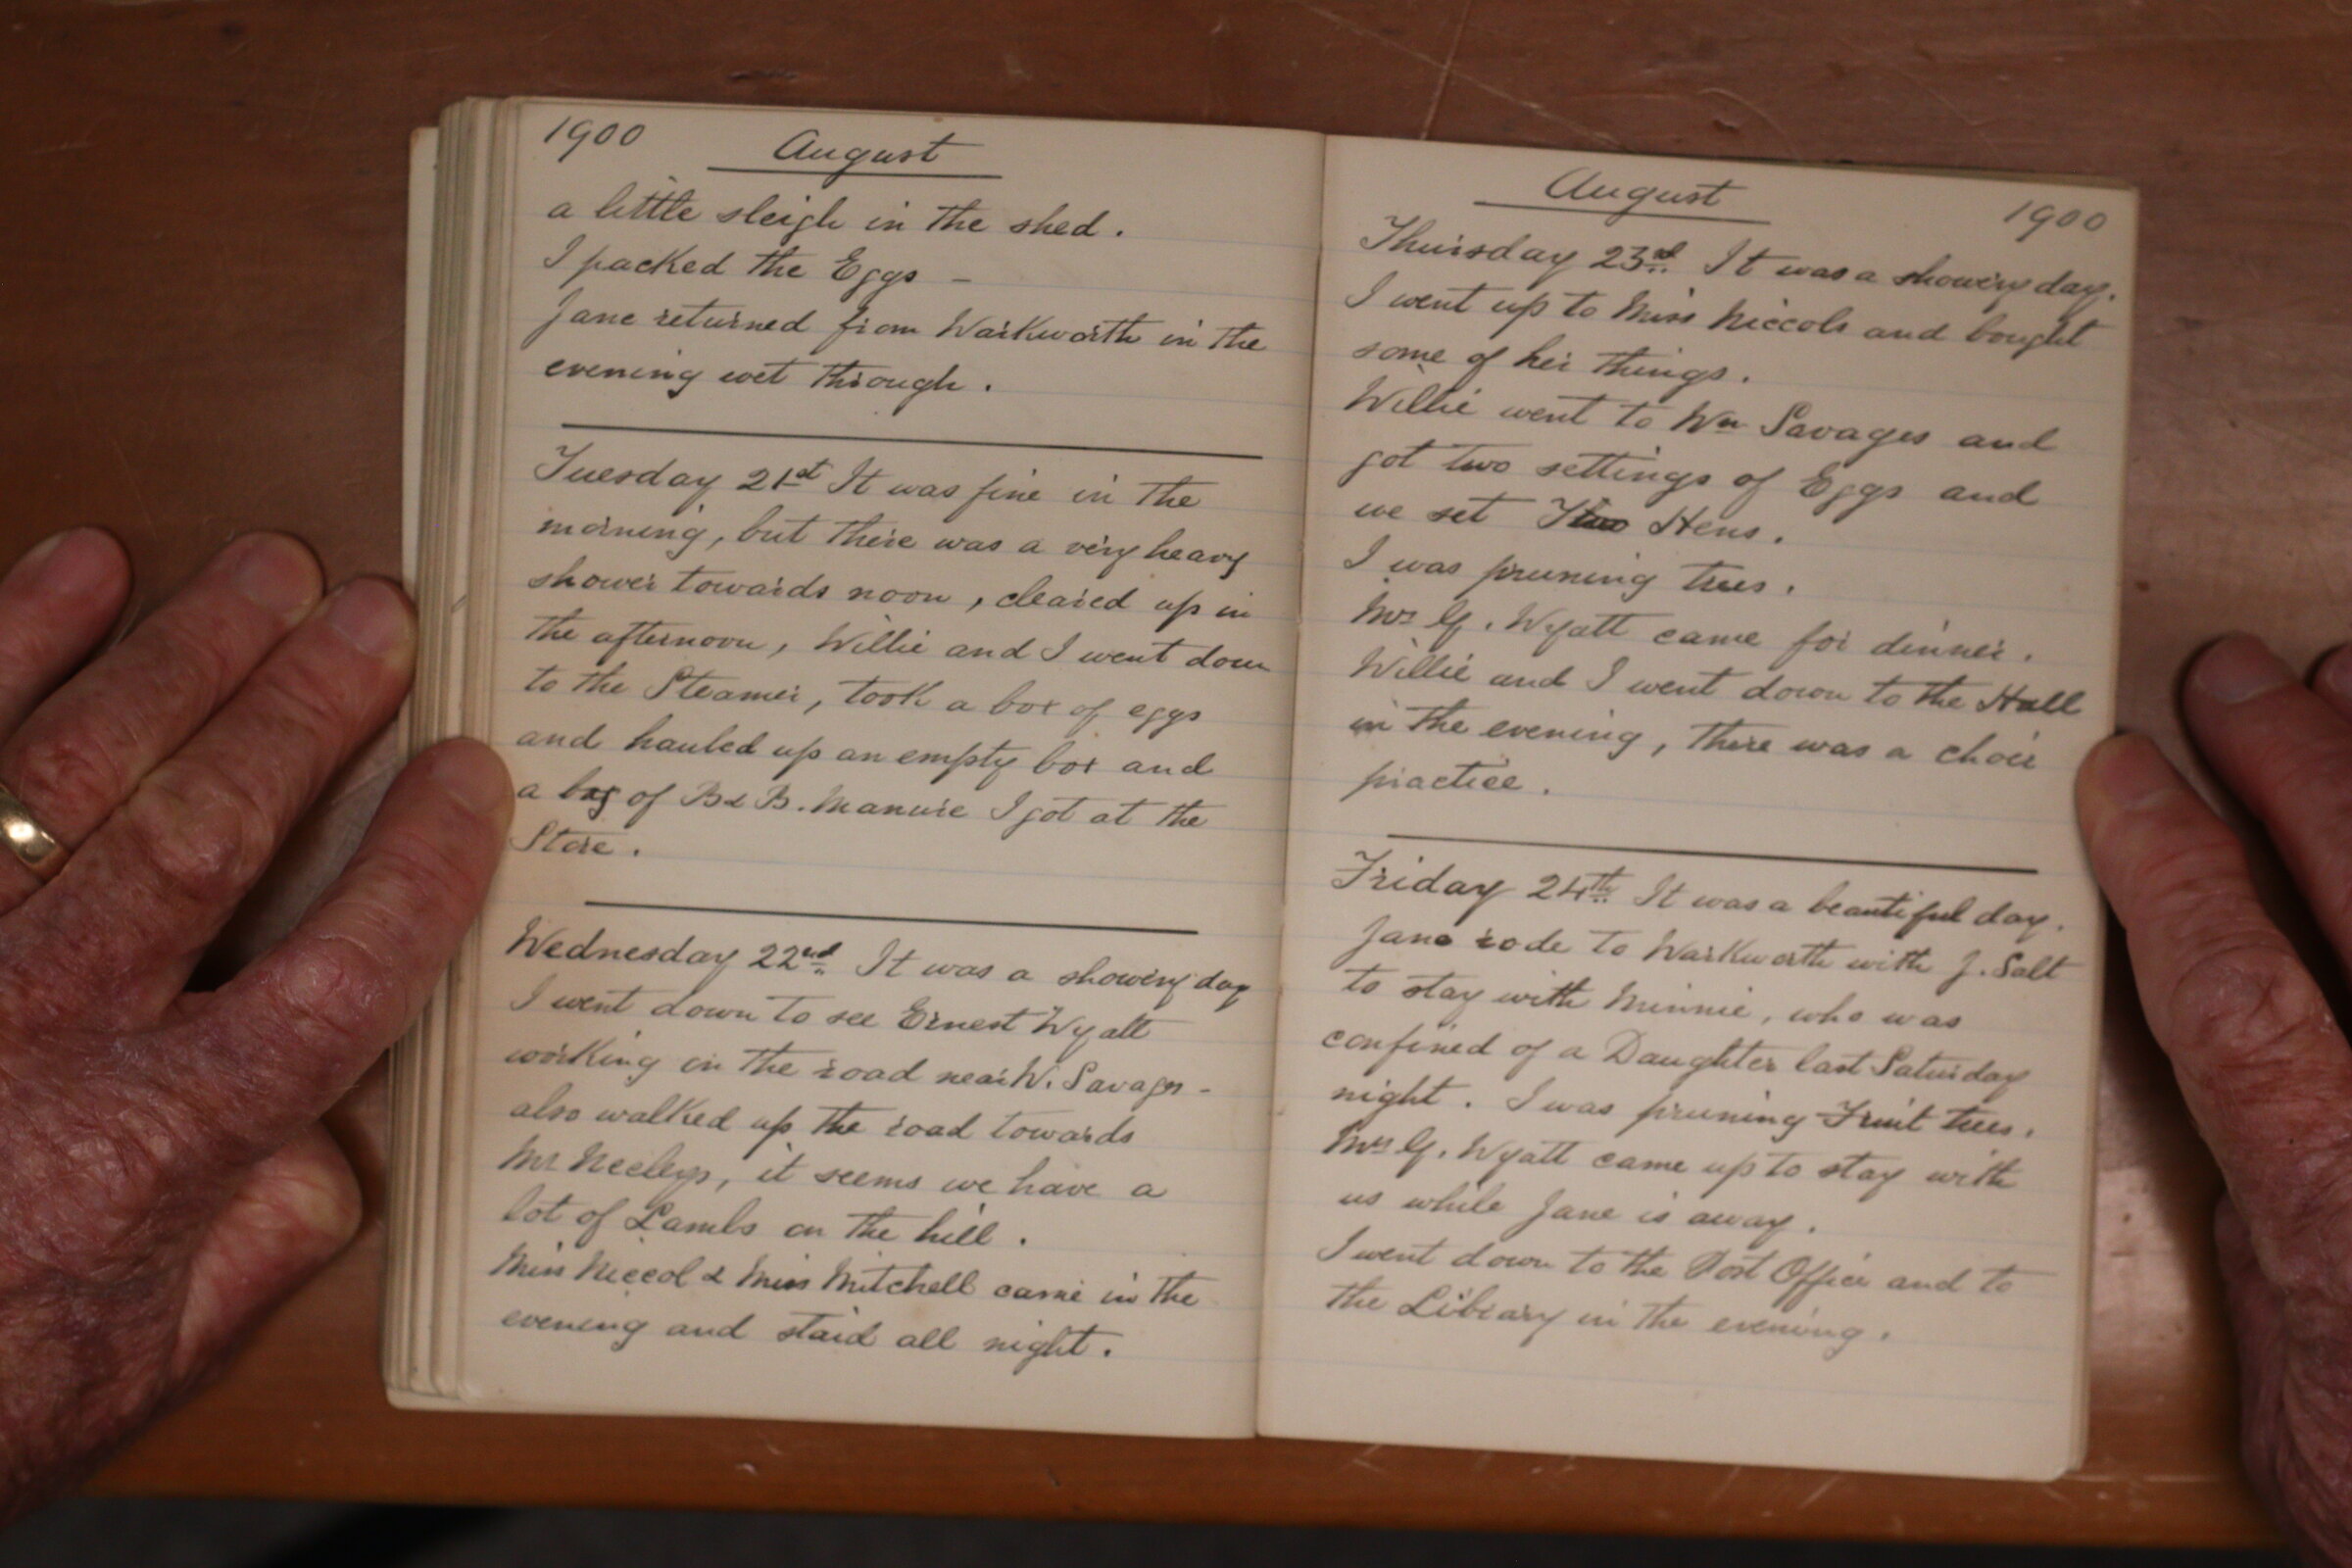 1900
August
a little sleigh in the shed.
I packed the Eggs –
Jane returned from Warkworth in the
evening wet through.
Tuesday 21st It was fine in the
morning, but there was a very heavy
shower towards noon, cleared up in
the afternoon, Willie and I went down
to the Steamer, took a box of eggs
and hauled up an empty box and
a bag of B & B. Manure I got at the
Store.
Wednesday 22nd. It was a showery day
I went down to see Ernest Wyatt
working in the road near W. Savages –
also walked up the road towards
Mr Neelys, it seems we have a
lot of Lambs on the hill.
Miss Niccol & Miss Mitchell came in the
evening and staid all night.
August
1900
Thursday 23rd. It was a showery day.
I went up to Miss Niccols and bought
some of her things.
Willie went to Wm Savages and
got two settings of Eggs and
we set Two Hens.
I was pruning trees.
Mrs G. Wyatt came for dinner.
Willie and I went down to the Hall
in the evening, there was a choir
practice.
Friday 24th. It was a beautiful day.
Jane rode to Warkworth with J. Salt
to stay with Minnie, who was
confined of a Daughter last Saturday
night. I was pruning Fruit trees.
Mrs G. Wyatt came up to stay with
us while Jane is away.
I went down to the Post Office and to
the Library in the evening.